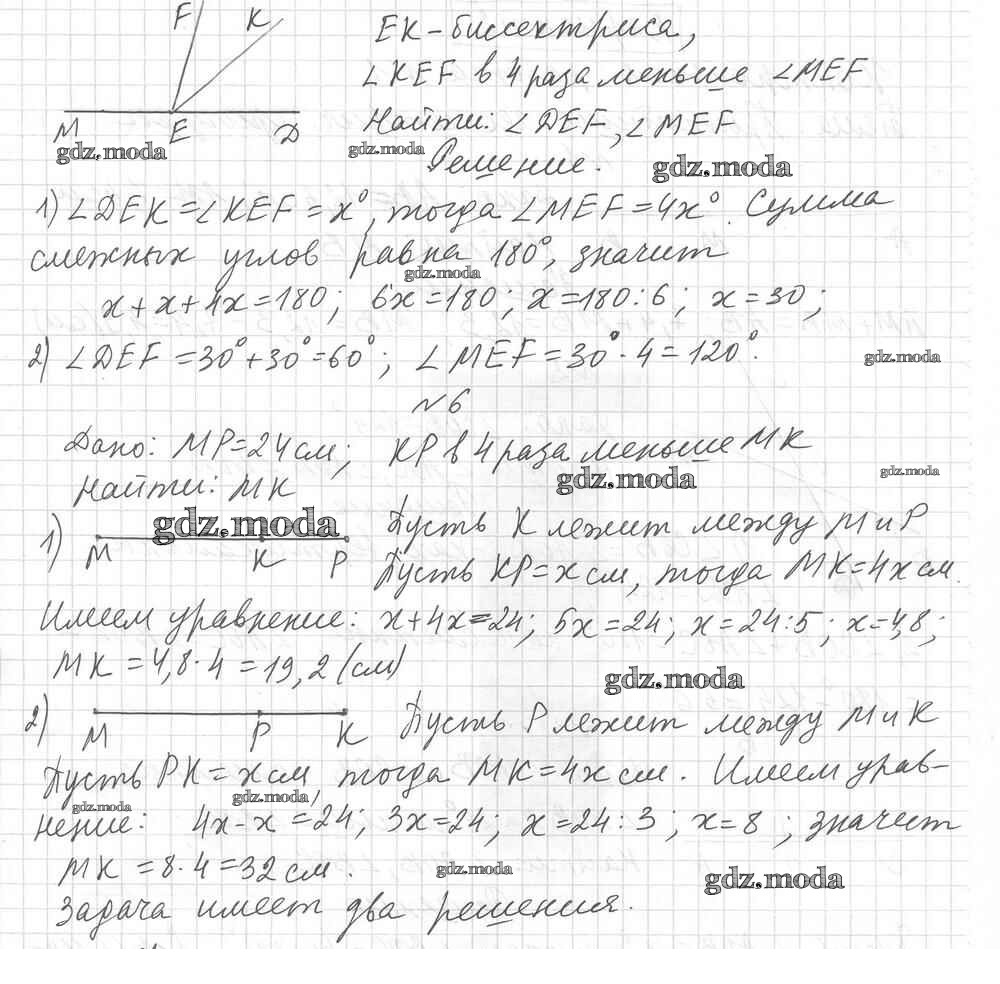 F K
M E D
EK - биссектриса,
∠KEF в 4 раза меньше ∠MEF
Найти: ∠DEF, ∠MEF
gdz.moda gdz.moda gdz.moda
Решение.
1) ∠DEK = ∠KEF = x°, тогда ∠MEF = 4x°. Сумма
смежных углов равна 180°, значит
gdz.moda
x + x + 4x = 180; 6x = 180; x = 180 : 6; x = 30;
2) ∠DEF = 30° + 30° = 60°; ∠MEF = 30° · 4 = 120°.
gdz.moda
№6
Дано: MP = 24 см; KP в 4 раза меньше MK
gdz.moda gdz.moda
Найти: MK
gdz.moda
1) M K P Пусть K лежит между M и P
Пусть KP = x см, тогда MK = 4x см.
Имеем уравнение: x + 4x = 24; 5x = 24; x = 24 : 5; x = 4,8;
MK = 4,8 · 4 = 19,2 (см)
gdz.moda
2) M P K Пусть P лежит между M и K
Пусть PK = x см, тогда MK = 4x см. Имеем урав-
gdz.moda gdz.moda
нение: 4x - x = 24; 3x = 24; x = 24 : 3; x = 8; значит
MK = 8 · 4 = 32 см.
gdz.moda gdz.moda
Задача имеет два решения.